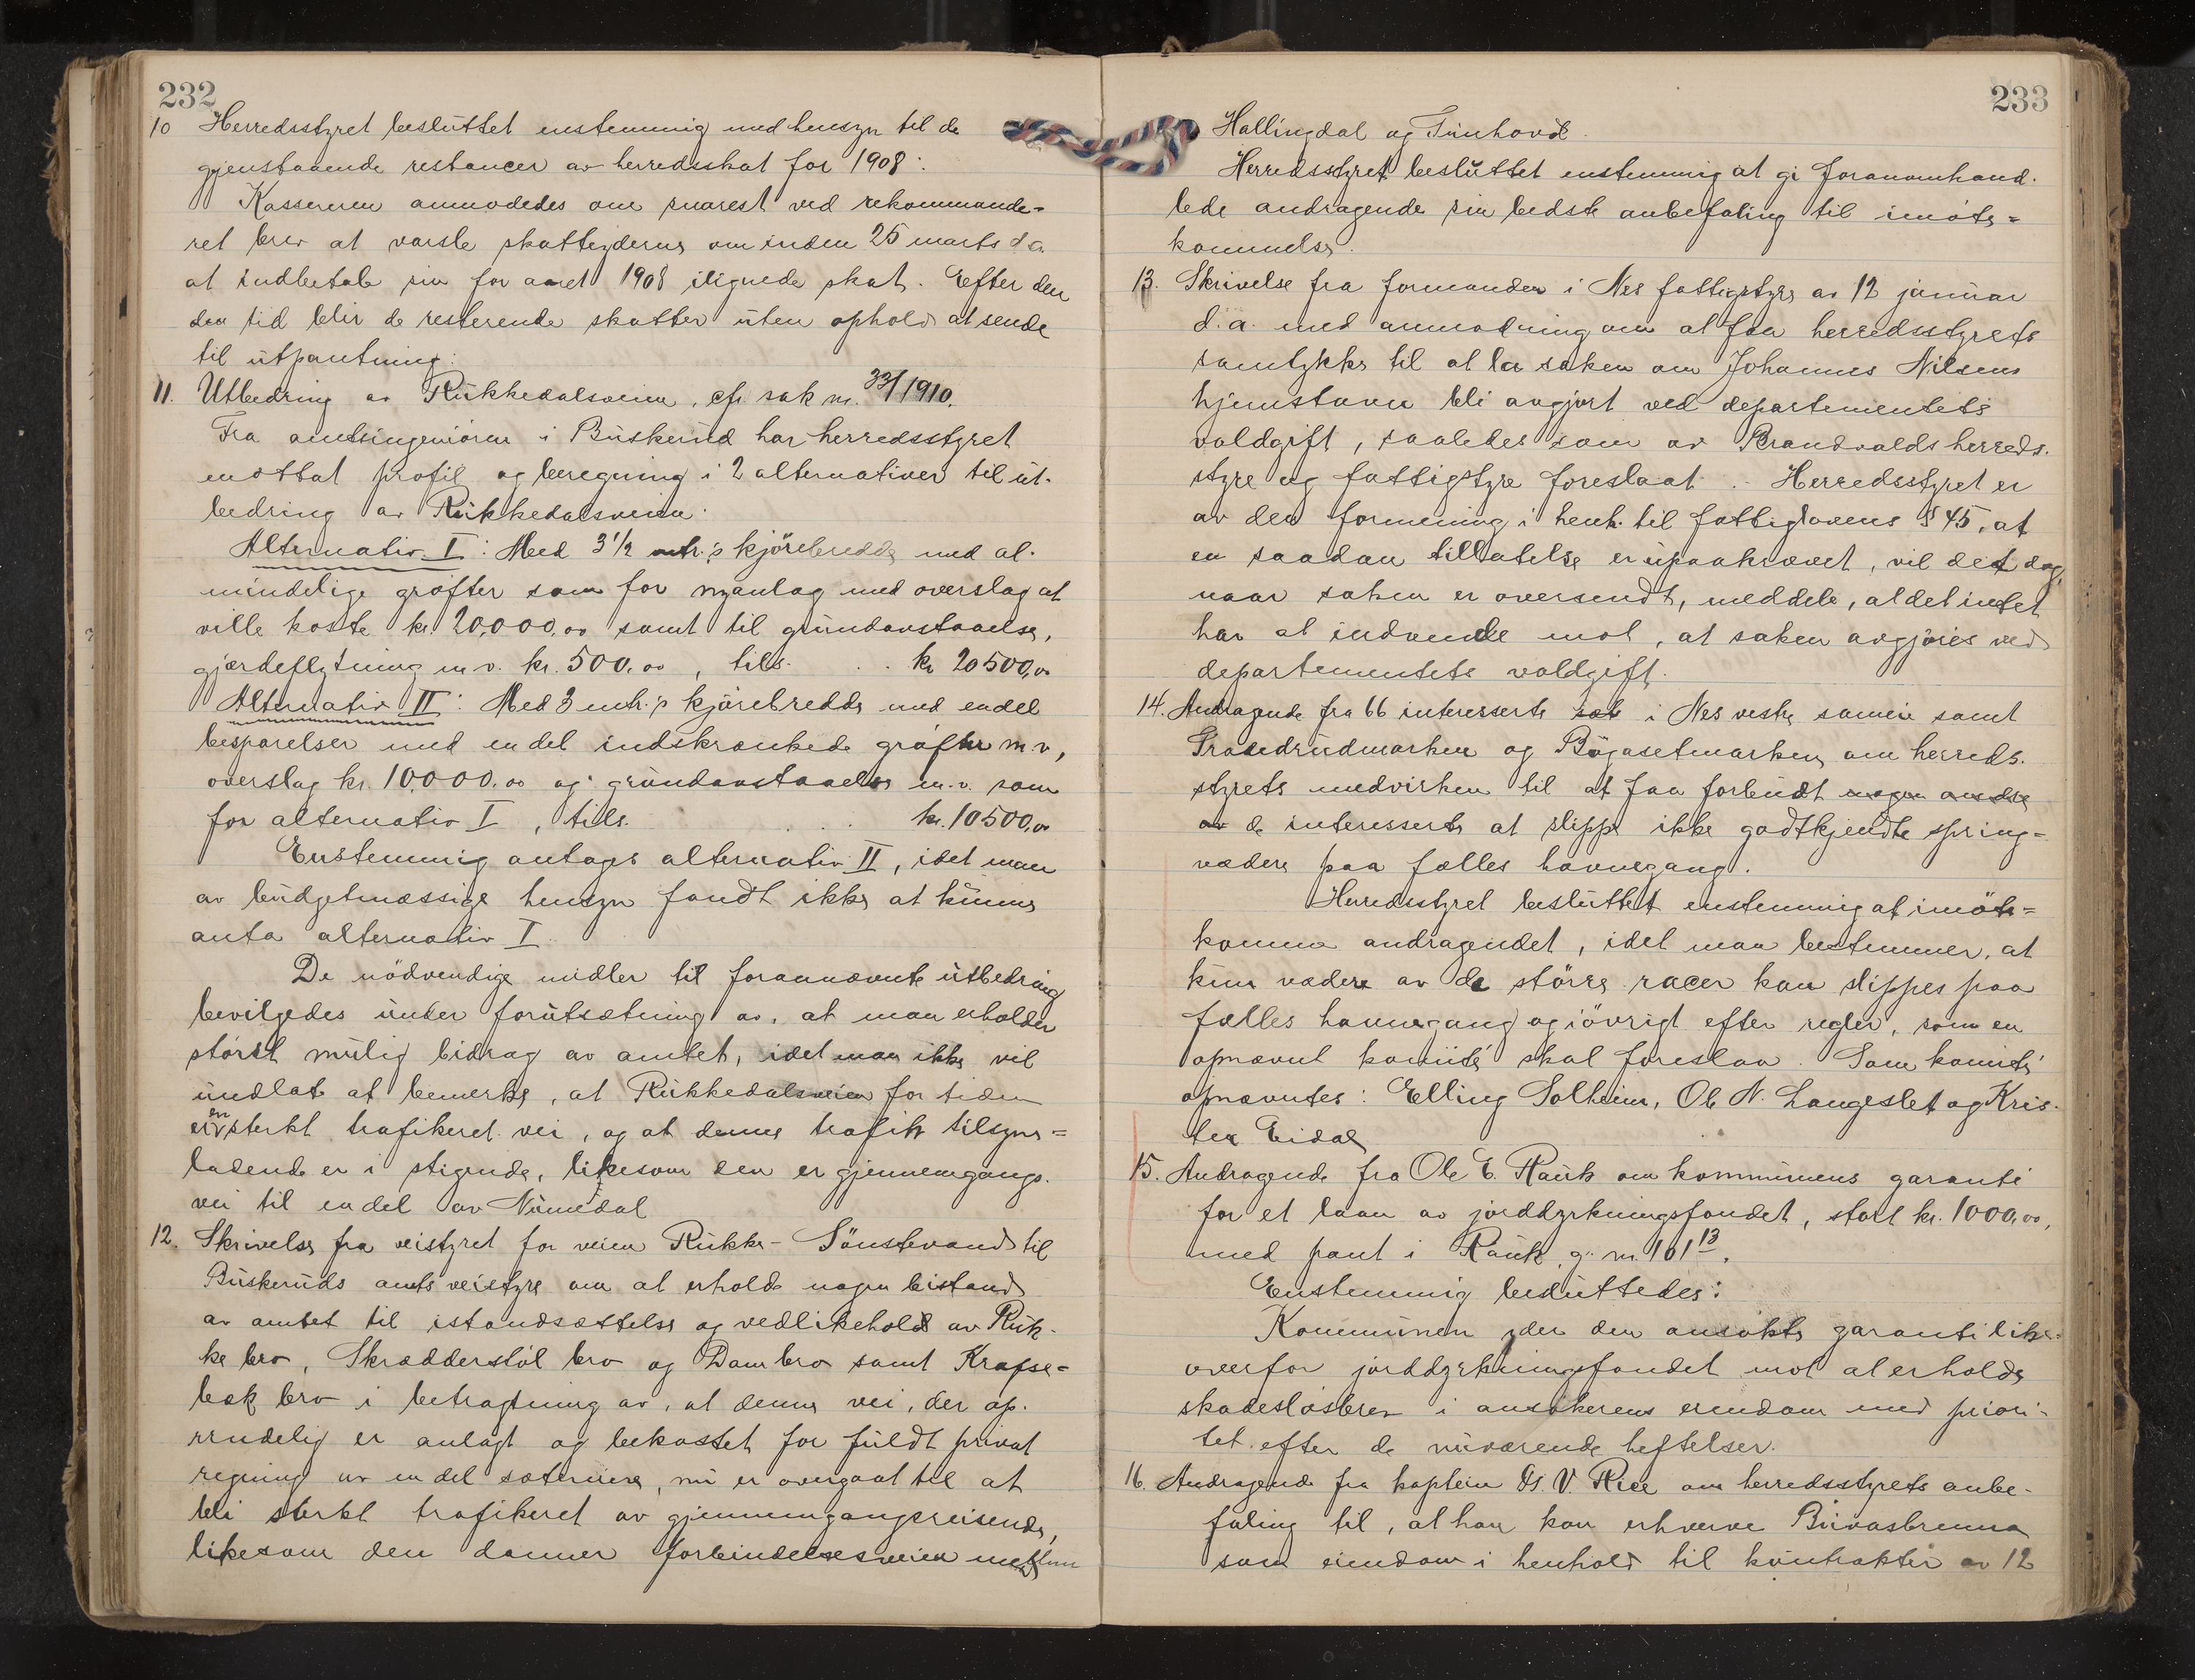 232
10 Herredsstyret besluttet enstemmig med hensyn til de
gjenstaaende restancer av herredsskat for 1908:
Kassereren anmodedes om snarest ved rekommande-
ret brev at varsle skatteyderne om inden 25 marts d.a.
at indbetale sin for aaret 1908 ilignede skat. Efter den
den tid blir de resterende skatter uten ophold at sende
til utpantning.
11. Utbedring av Rukkedalsveien, cfr. sak nr. 33/1910.
Fra amtsingeniören i Buskerud har herredsstyret
mottat profil og beregning i 2 alternativer til ut-
bedring av Rukkedalsveien.
Alternativ I: Med 3 1/2 mtr.s kjörebredde med al-
mindelige gröfter som for nyanlag med overslag at
ville koste kr. 20,000,00 samt til grundavstaaelse,
gjærdeflytning m.v. kr. 500,00, tils. . . kr 20500,00
Alternativ II: Med 3 mtr.s kjörebredde med endel
besparelser med en del indskrænkede gröfter m.v,
overslag kr. 10,000.00 og grundavstaaelse m.v. som
for alternativ I, tils. . . . kr. 10500,00
Enstemmig antages alternativ II, idet man
av budgetmæssige hensyn fandt ikke at kunne
anta alternativ I.
De nödvendige midler til forannævnte utbedring
bevilgedes under forutsætning av, at man erholder
störst mulig bidrag av amtet, idet man ikke vil
undlate at bemerke, at Rukkedalsveien for tiden
er en sterkt trafikeret vei, og at denne trafik tilsyne-
ladende er i stigende, likesom den er gjennemgangs-
vei til en del av Numedal
12. Skrivelse fra veistyret for veien Rukke - Sönstevand til
Buskeruds amts veistyre om at erholde nogen bistand
av amtet til istandsættelse og vedlikehold av Ruk-
ke bro, Skræddersköl bro og Dam bro samt Krafse-
bæk bro i betragtning av, at denne vei, der op-
rindelig er anlagt og bekostet for fuldt privat
regning av en del sætereiere, nu er overgaat til at
bli sterkt trafikeret av gjennemgangsreisende,
likesom den danner forbindelsesveien mellem
233
Hallingdal og Tunhovd.
Herredsstyret besluttet enstemmig at gi foranomhand-
lede andragende sin bedste anbefaling til imöte-
kommelse.
13. Skrivelse fra formanden i Nes fattigstyre av 12 januar
d.a. med anmodning om at faa herredsstyrets
samtykke til at la saken om Johannes Nilsens
hjemstavn bli avgjort ved departementets
voldgift, saaledes som av Brandvalds herreds-
styre og fattigstyre foreslaat. - Herredsstyret er
av den formening i henh. til fattiglovens § 45, at
en saadan tillatelse er upaakrævet, vil det dog,
naar saken er oversendt, meddele, at det intet
har at indvende mot, at saken avgjöres ved
departementets voldgift.
14. Andragende fra 66 interesserte i Nes vestre sameie samt
Traudrudmarken og Bögasetmarken om herreds-
styrets medvirken til at faa forbudt nogen andre
av de interesserte at slippe ikke godtkjendte spring-
vædere paa fælles havnegang.
Herredsstyret besluttet enstemmig at imöte-
komme andragendet, idet man bestemmer, at
kun vædere av de större racer kan slippes paa
fælles havnegang og iövrigt efter regler, som en
opnævnt komité skal foreslaa. Som komité
opnævntes: Elling Solheim, Ole N. Langeslet og Kris-
ten Eidal
15. Andragende fra Ole E. Rauk om kommunens garanti
for et laan av jorddyrkningsfondet, stort kr. 1000,00,
med pant i Rauk, g. nr. 101 13.
Enstemmig besluttedes:
Kommunen yder den ansökte garanti like-
overfor jorddyrkningsfondet mot at erholde
skadeslösbrev i ansökerens eiendom med priori-
tet efter de nuværende heftelser.
16. Andragende fra kaptein Hs. V. Riee om herredsstyrets anbe-
faling til, at han kan erhverve Buvasbrenna
som eiendom i henhold til kontrakter av 12